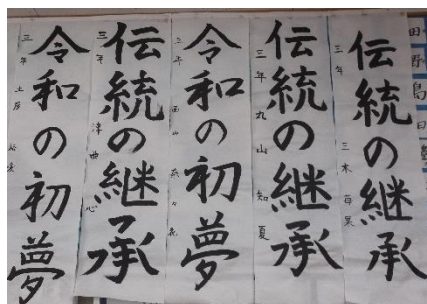 伝統の継承
三年
伝統の継承
三年 丸山 知夏
令和の初夢
三年
伝統の継承
三年
令和の初夢
三年